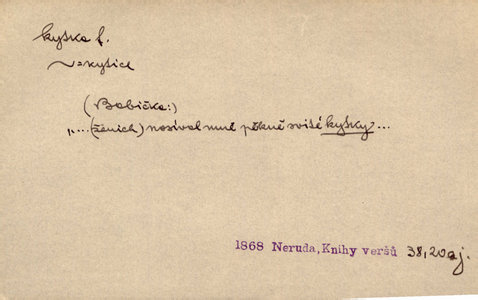 kyška f.
~ = kytice
(Babička:)
„...(ženich) nosíval mně pěkně svité kyšky...
1868 Neruda, Knihy veršů 38,20aj.